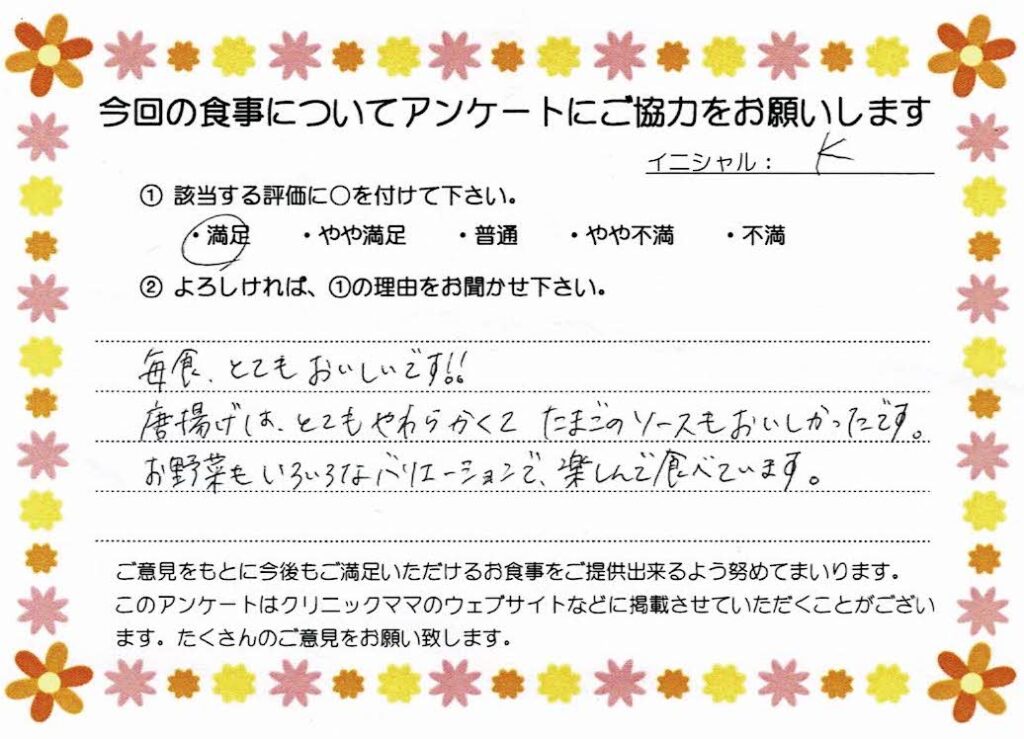 今回の食事についてアンケートにご協力をお願いします
イニシャル： K
① 該当する評価に○を付けて下さい。
・満足 ・やや満足 ・普通 ・やや不満 ・不満
② よろしければ、①の理由をお聞かせ下さい。
毎食、とてもおいしいです!!
唐揚げは、とてもやわらかくて たまごのソースもおいしかったです。
お野菜もいろいろなバリエーションで、楽しんで食べています。
ご意見をもとに今後もご満足いただけるお食事をご提供出来るよう努めてまいります。
このアンケートはクリニックママのウェブサイトなどに掲載させていただくことがござい
ます。たくさんのご意見をお願い致します。